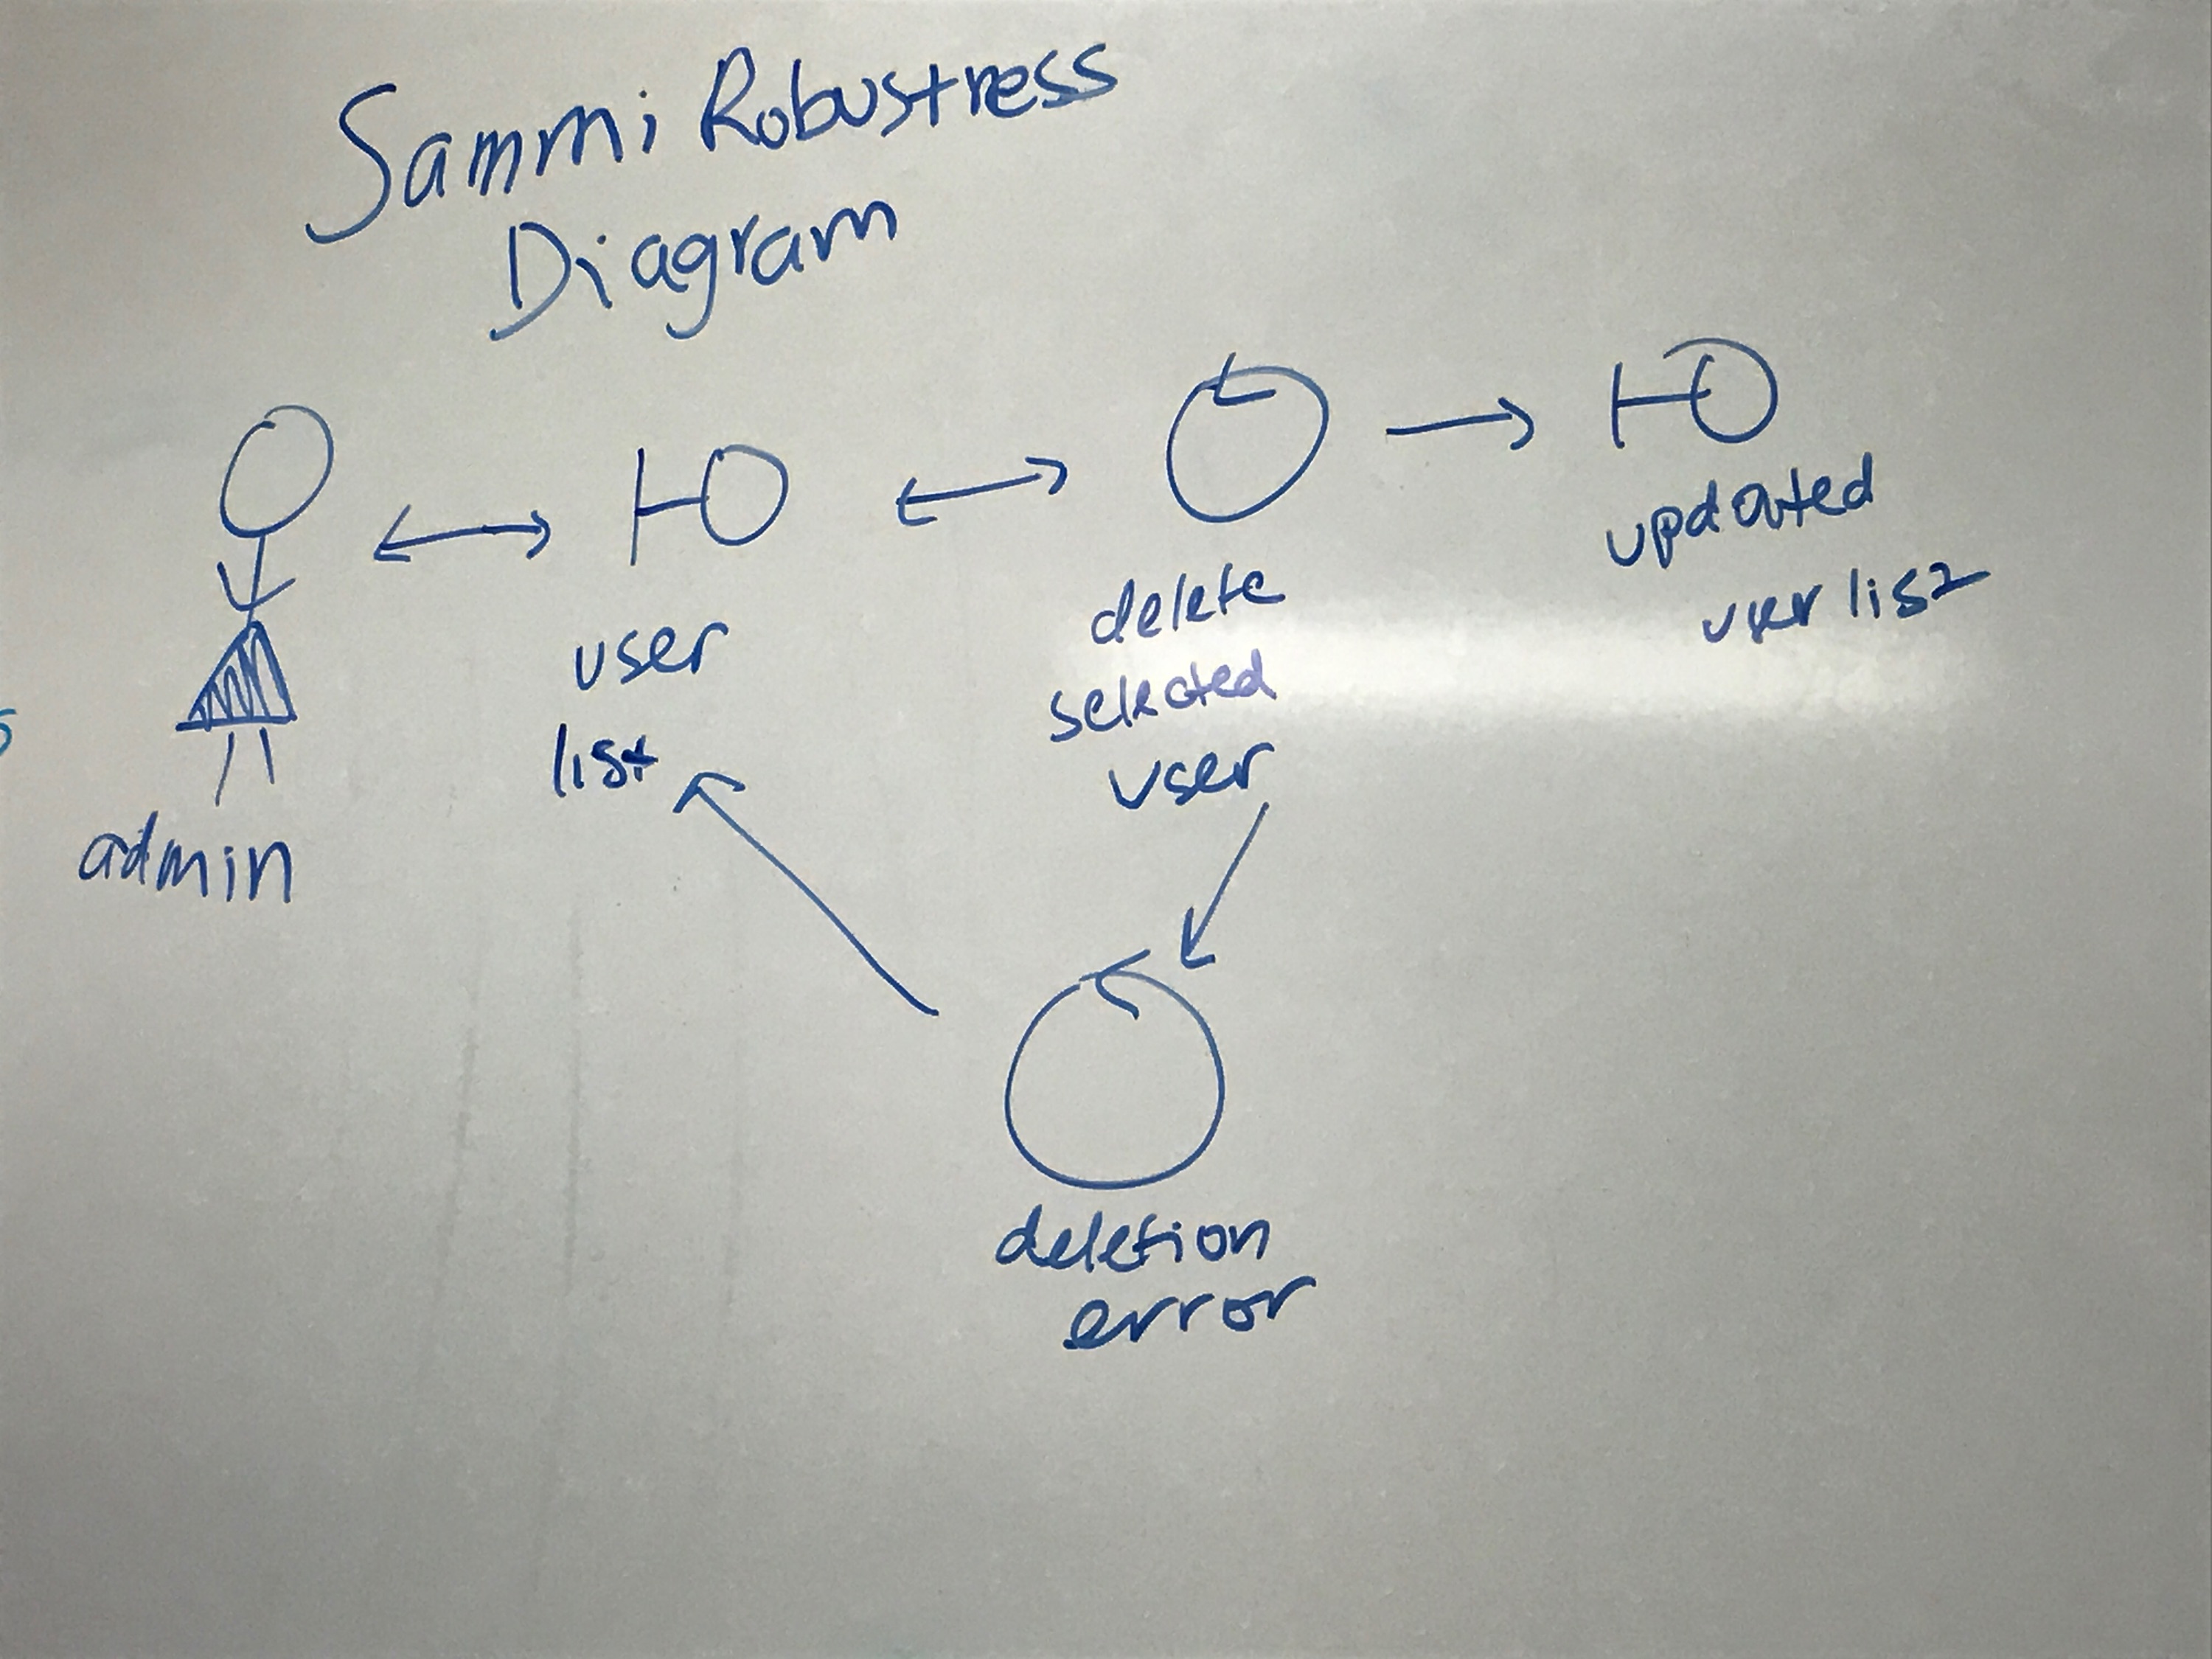 Sammi Robustness
Diagram
admin
user
list
delete
selected
user
updated
user list
deletion
error